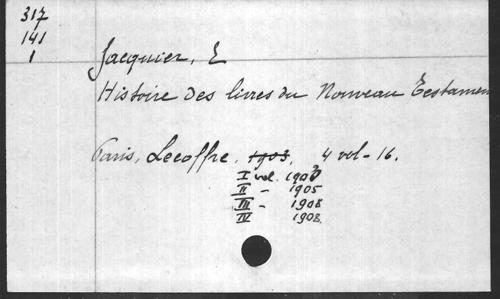 317
141
1
Jacquier, E
Histoire des livres du Nouveau Testamen
Paris, Lecoffre, 1903, 4 vol - 16.
I vol. 1903
II - 1905
III - 1908
IV 1908.